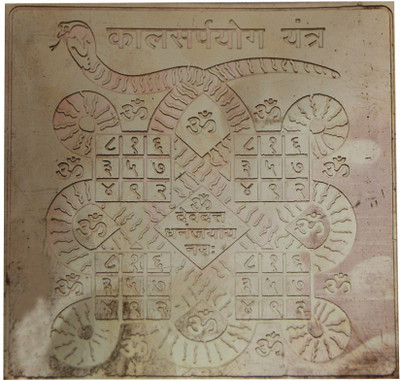 कालसर्पयोग यंत्र
ॐ ॐ ॐ
८ १ ६ ८ १ ६
ॐ ३ ५ ७ ३ ५ ७ ॐ
४ ९ २ ४ ९ २
ॐ
देवदत्त
ॐ धनंजयाय ॐ
नमः
८ १ ६ ८ १ ६
ॐ ३ ५ ७ ३ ५ ७ ॐ
४ ९ २ ४ ९ २
ॐ
ॐ ॐ